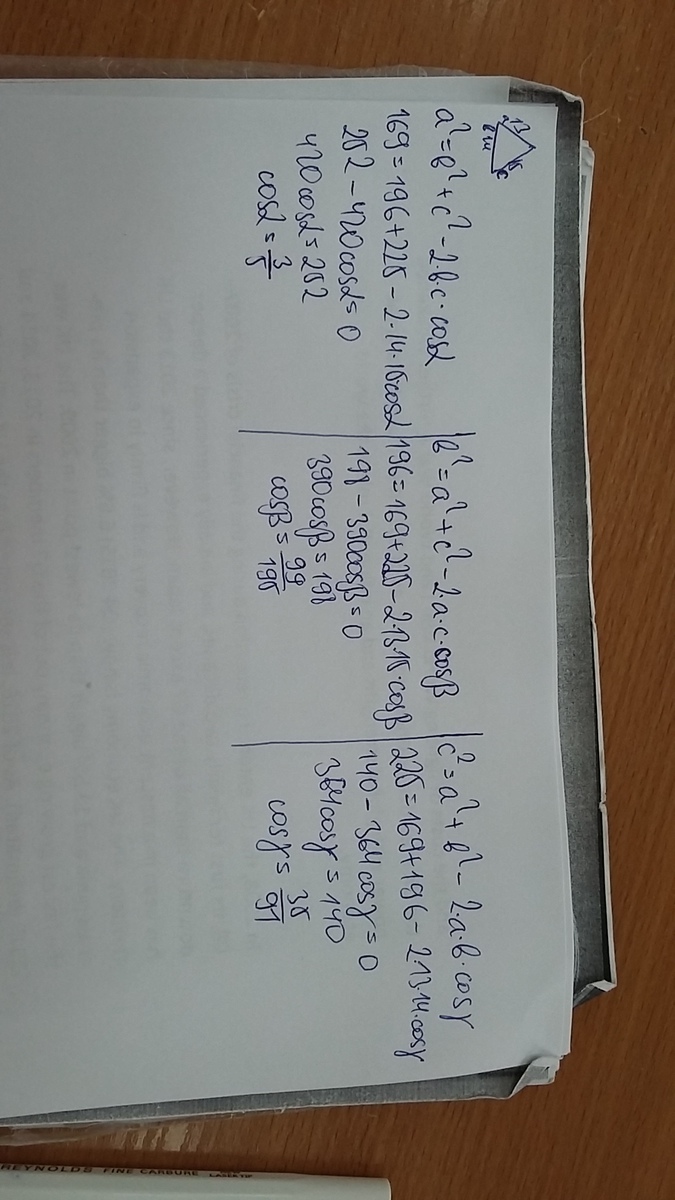 a² = b² + c² - 2·b·c·cosα
169 = 196+225 - 2·14·15·cosα
252 - 420cosα = 0
420cosα = 252
cosα = 3/5
b² = a² + c² - 2·a·c·cosβ
196 = 169+225 - 2·13·15·cosβ
198 - 390cosβ = 0
390cosβ = 198
cosβ = 99/195
c² = a² + b² - 2·a·b·cosγ
225 = 169+196 - 2·13·14·cosγ
140 - 364cosγ = 0
364cosγ = 140
cosγ = 35/91
REYNOLDS FINE CARBURE